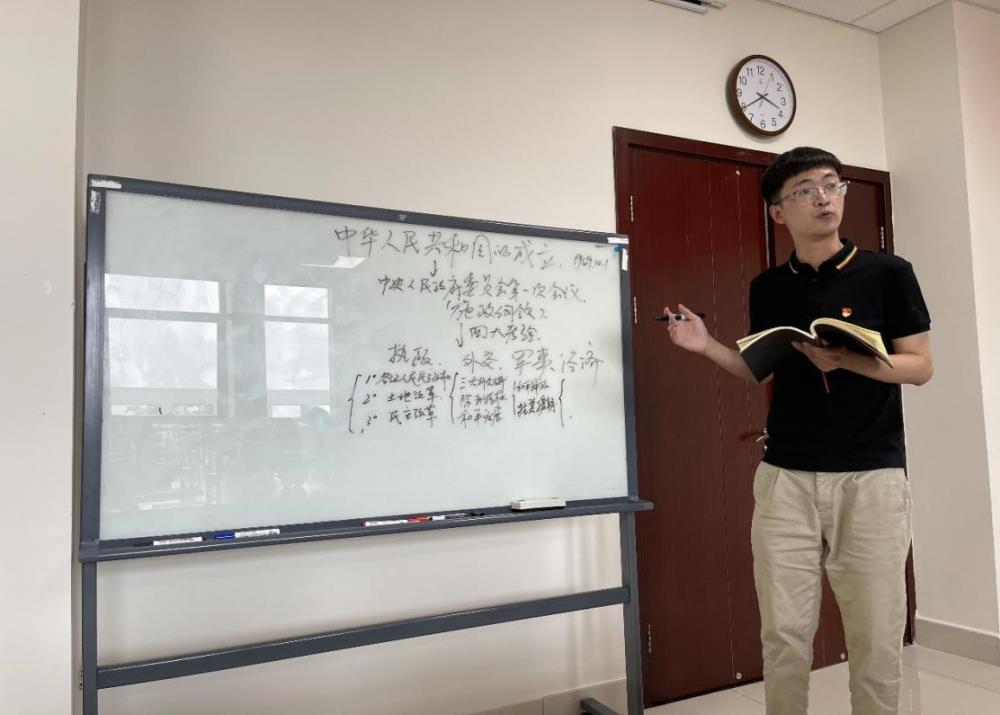 中华人民共和国的成立. 1949.10.1
↓
中央人民政府委员会第一次会议.
(施政纲领)
↓ 四大考验.
执政、外交、军事、经济
1° 各级人民民主政权 三大外交政策 和平解放
2° 土地改革.
3° 民主改革 和平发展 抗美援朝
12
1
2
3
4
5
6
7
8
9
10
11